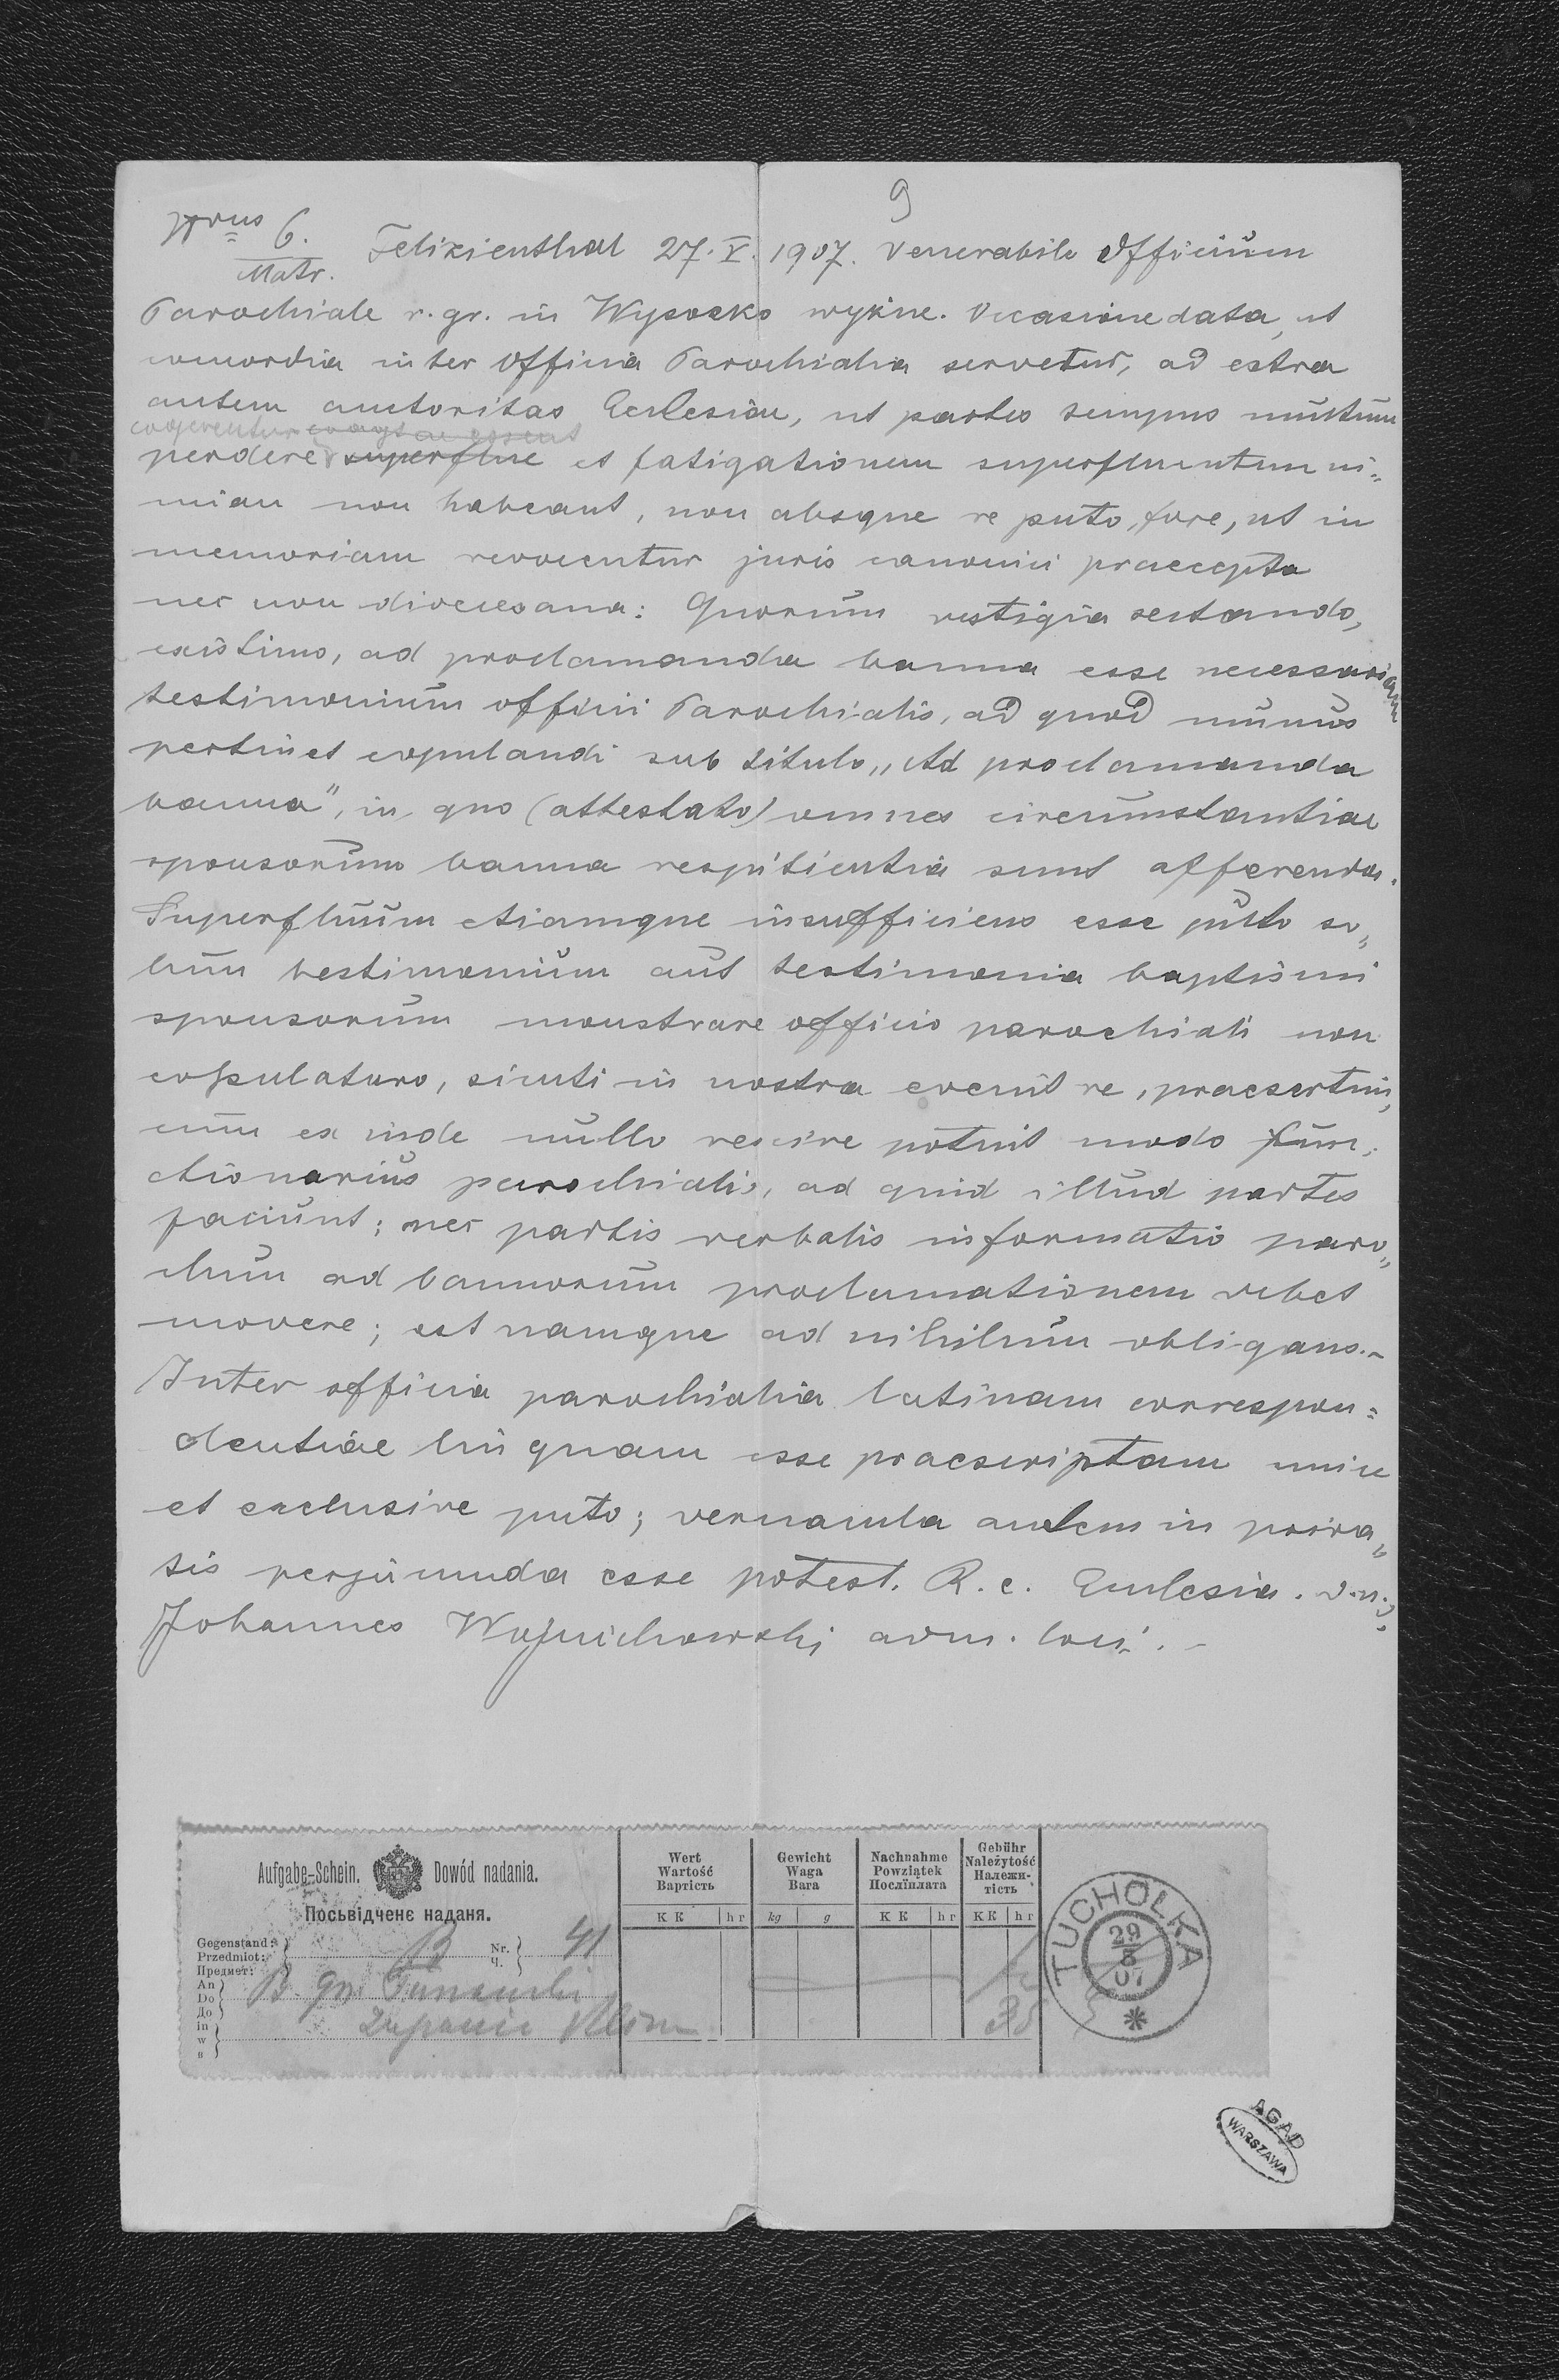 9
Nrus 6.
Matr.
Felixienthal 27. V. 1907. Venerabile Officium
Parochiale r. gr. in Wysocko wyżne. Occasione data, ut
concordia inter Officia Parochialia servetur, ad extra
autem auctoritas Ecclesiae, ut partes tempus multum
cogerentur
perdere superflue et fatigationem superfluentum ni„
miam non habeant, non absque re puto, fore, ut in
memoriam revocentur juris canonici praecepta
nec non dioecesana: Quorum vestigia sectando,
existimo, ad proclamanda banna esse necessarium
testimonium officii Parochialis, ad quod munus
pertinet copulandi sub titulo „Ad proclamanda
banna", in quo (attestato) omnes circumstantiae
sponsorum banna respitientia sunt afferenda.
Superfluum etiamque insufficiens esse puto so„
lum testimonium aut testimonia baptismi
sponsorum monstrare officio parochiali non
copulaturo, sicuti in nostra evenit re, praesertim,
cum ex inde nullo rescire potuit modo fun„
ctionarius parochialis, ad quid illud partes
faciunt; nec partis verbalis informatio paro„
chum ad bannorum proclamationem debet
movere; est namque ad nihilum obligans.-
Inter officia parochialia latinam correspon=
dentiae linguam esse praescriptam unice
et exclusive puto; vernacula autem in priva„
tis perjucunda esse potest. R. c. Ecclesia.
Johannes Wojnichowski adm. loci.-
Aufgabe-Schein. Dowód nadania.
Посьвідченє наданя.
Gegenstand:
Przedmiot:
Предмет:
R
Nr.
Ч.
41
An
Do
До
in
w
в
Wert
Wartość
Вартість
K K hr
Gewicht
Waga
Вага
kg g
Nachnahme
Powziątek
Посліплата
K K hr
Gebühr
Należytość
Належи-
тість
KK hr
35
TUCHOLKA
29
5
07
AGAD
WARSZAWA